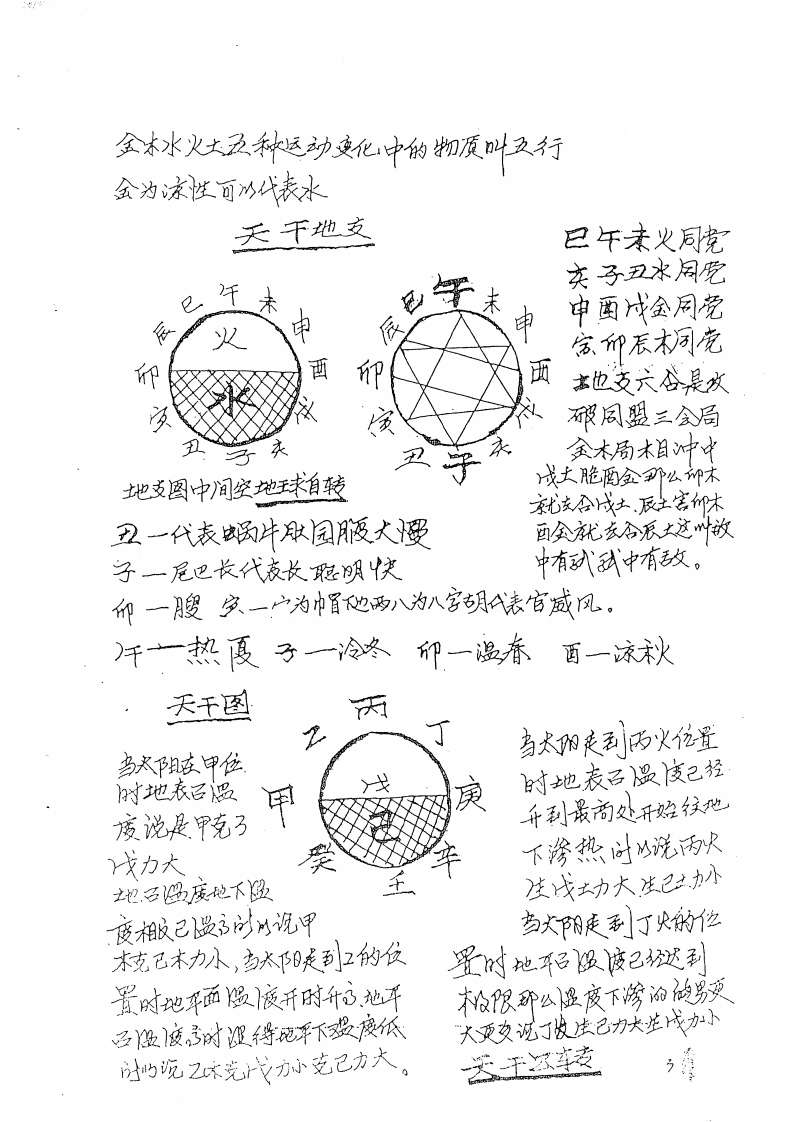 金木水火土五种运动变化中的物质叫五行
金为凉性可以代表水
天干地支
巳 午 未
辰 申
火
卯 酉
水
寅 戌
丑 子 亥
地支图中间空地球自转
巳 午 未
辰 申
卯 酉
寅 戌
丑 子 亥
巳午未火同党
亥子丑水同党
申酉戌金同党
寅卯辰木同党
地支六合是攻
破同盟三会局
金木局木目冲中
戌土脆酉金那么卯木
就去合戌土.辰土害卯木
酉金就去合辰土这叫敌
中有我我中有敌。
丑一代表蜗牛肚园腹大慢
子一尾巴长代表长聪明快
卯一腰 寅一宀为帽下地两八为八字胡代表官威风。
午一热夏 子一冷冬 卯一温春 酉一凉秋
天干图
丙
乙 丁
甲 戊 庚
己
癸 辛
壬
当太阳在甲位
时地表面温
度说是甲克了
戊力大
地面温度地下温
度相反已温了所以说甲
木克己木力小,当太阳走到乙的位
置时地平面温度开时升了.地平
面温度高时显得地平下温度低
所以说乙木克戊力小克己力大。
当太阳走到丙火位置
时地表面温度已经
升到最高处开始往地
下渗热所以说丙火
生戊土力大.生己土力小
当太阳走到丁火的位
置时地平面温度已经达到
极限那么温度下渗的
大更多说丁火生己力大生戊力小
天干公转
3